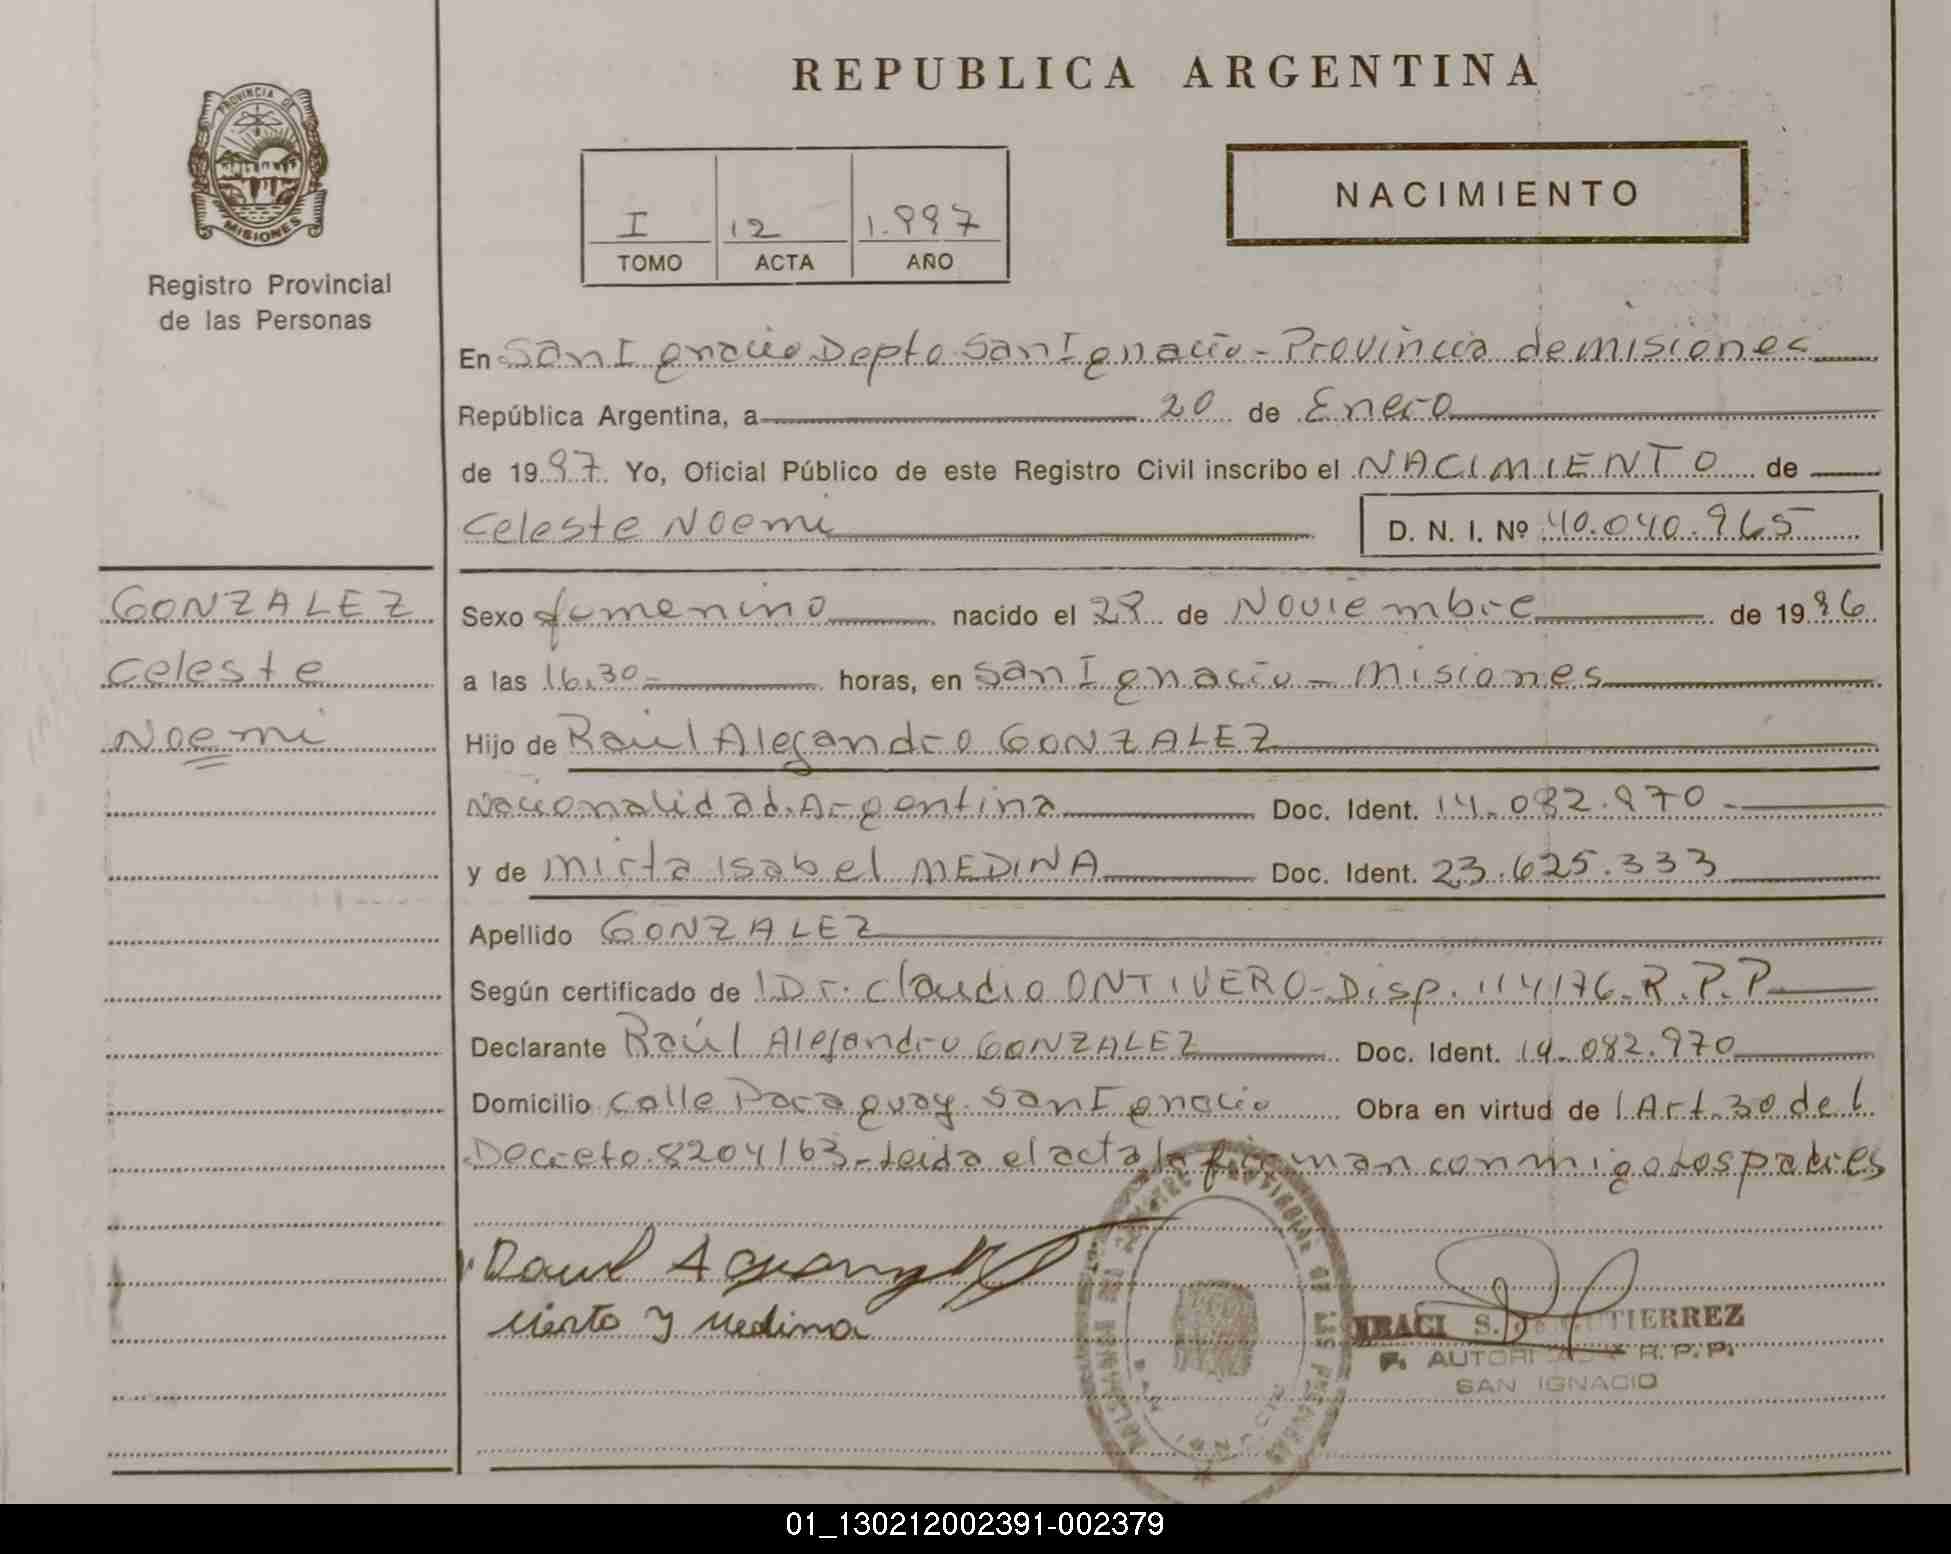 REPUBLICA ARGENTINA
PROVINCIA DE
MISIONES
Registro Provincial
de las Personas
I 12 1.997
TOMO ACTA AÑO
NACIMIENTO
En San Ignacio Depto San Ignacio - Provincia de misiones
República Argentina, a 20 de Enero
de 1997 Yo, Oficial Público de este Registro Civil inscribo el NACIMIENTO de
Celeste Noemi D. N. I. Nº 40.040.965
GONZALEZ
Celeste
Noemi
Sexo femenino nacido el 28 de Noviembre de 1996
a las 16.30 horas, en San Ignacio - Misiones
Hijo de Raúl Alejandro GONZALEZ
Nacionalidad Argentina Doc. Ident. 14.082.970 -
y de Mirta Isabel MEDINA Doc. Ident. 23.625.333
Apellido GONZALEZ
Según certificado de l Dr. Claudio ONTIVERO - Disp. 114/76 - R.P.P
Declarante Raúl Alejandro GONZALEZ Doc. Ident. 14.082.970
Domicilio calle Paraguay San Ignacio Obra en virtud de l Art. 30 del
Decreto 8204/63 - Leida el acta la firman conmigo los padres
Raul A
Mirta Y Medina
S. de GUTIERREZ
R.P.P.
SAN IGNACIO
01_130212002391-002379